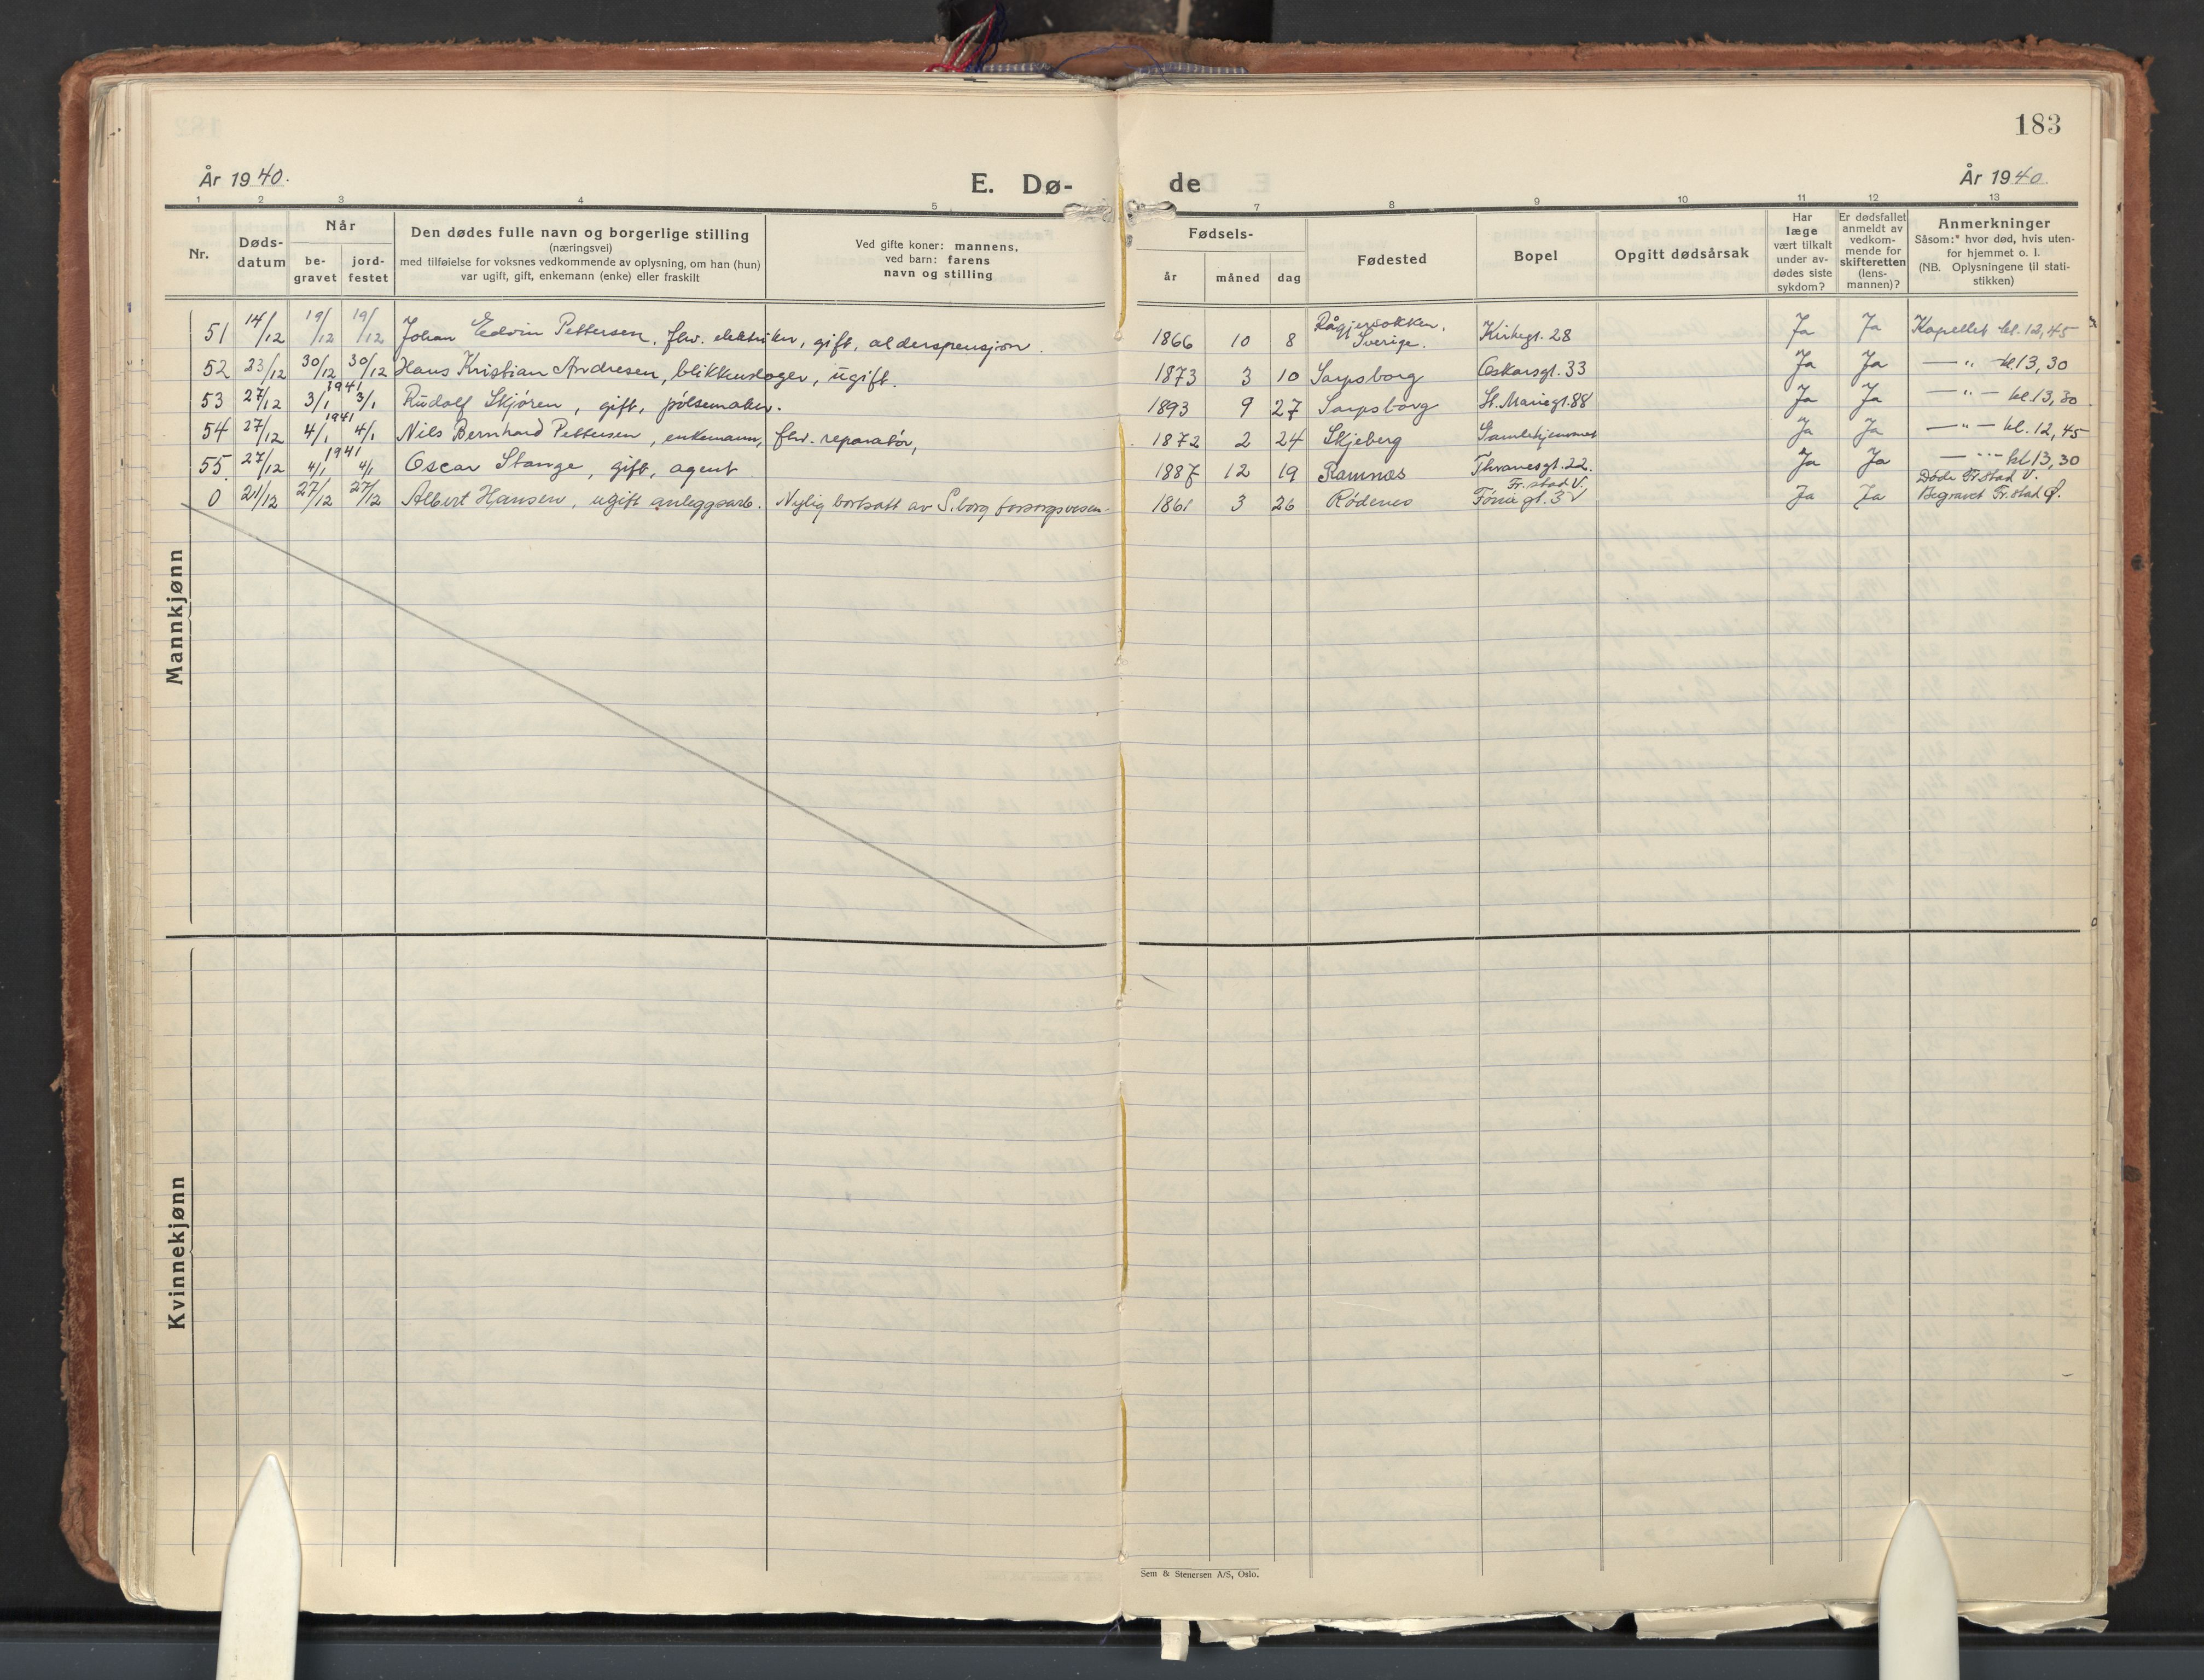 183
År 1940.
E. Dø-
de
År 1940.
1 2 3 4 5 7 8 9 10 11 12 13
Nr.
Døds-
datum
Når
be-
gravet
jord-
festet
Den dødes fulle navn og borgerlige stilling
(næringsvei)
med tilføielse for voksnes vedkommende av oplysning, om han (hun)
var ugift, gift, enkemann (enke) eller fraskilt
Ved gifte koner: mannens,
ved barn: farens
navn og stilling
Fødsels-
år måned dag
Fødested
Bopel
Opgitt dødsårsak
Har
læge
vært tilkalt
under av-
dødes siste
sykdom?
Er dødsfallet
anmeldt av
vedkom-
mende for
skifteretten
(lens-
mannen)?
Anmerkninger
Såsom:* hvor død, hvis uten-
for hjemmet o. l.
(NB. Oplysningene til stati-
stikken)
51 14/12 19/12 19/12 Johan Edvin Pettersen, fhv. elektriker, gift, alderspensjon. 1866 10 8 Sverige. Kirkegt. 28 Ja Ja Kapellet kl. 12,45
52 23/12 30/12 30/12 Hans Kristian Andresen, blikkenslager, ugift. 1873 3 10 Sarpsborg Oskarsgt. 33 Ja Ja — " — kl. 13,30
1941
53 27/12 3/1 3/1 Rudolf Skjøren, gift, pølsemaker. 1893 9 27 Sarpsborg St. Mariegt. 88 Ja Ja — " — kl. 13,30
1941
54 27/12 4/1 4/1 Nils Bernhard Pettersen, enkemann, fhv. reparatør, 1872 2 24 Skjeberg Gamlehjemmet Ja Ja — " — kl. 12,45
1941
55 27/12 4/1 4/1 Oscar Stange, gift, agent 1887 12 19 Ramnes Thranesgt. 22. Ja Ja — " — kl 13,30
Fr.stad V. Døde Fr.stad V.
0 21/12 27/12 27/12 Albert Hansen, ugift anleggsarb. Nylig bortsatt av S.borg forsorgsvesen. 1861 3 26 Rødenes gt. 3 Ja Ja Begravet Fr.stad Ø.
Mannkjønn
Kvinnekjønn
Sem & Stenersen A/S, Oslo.